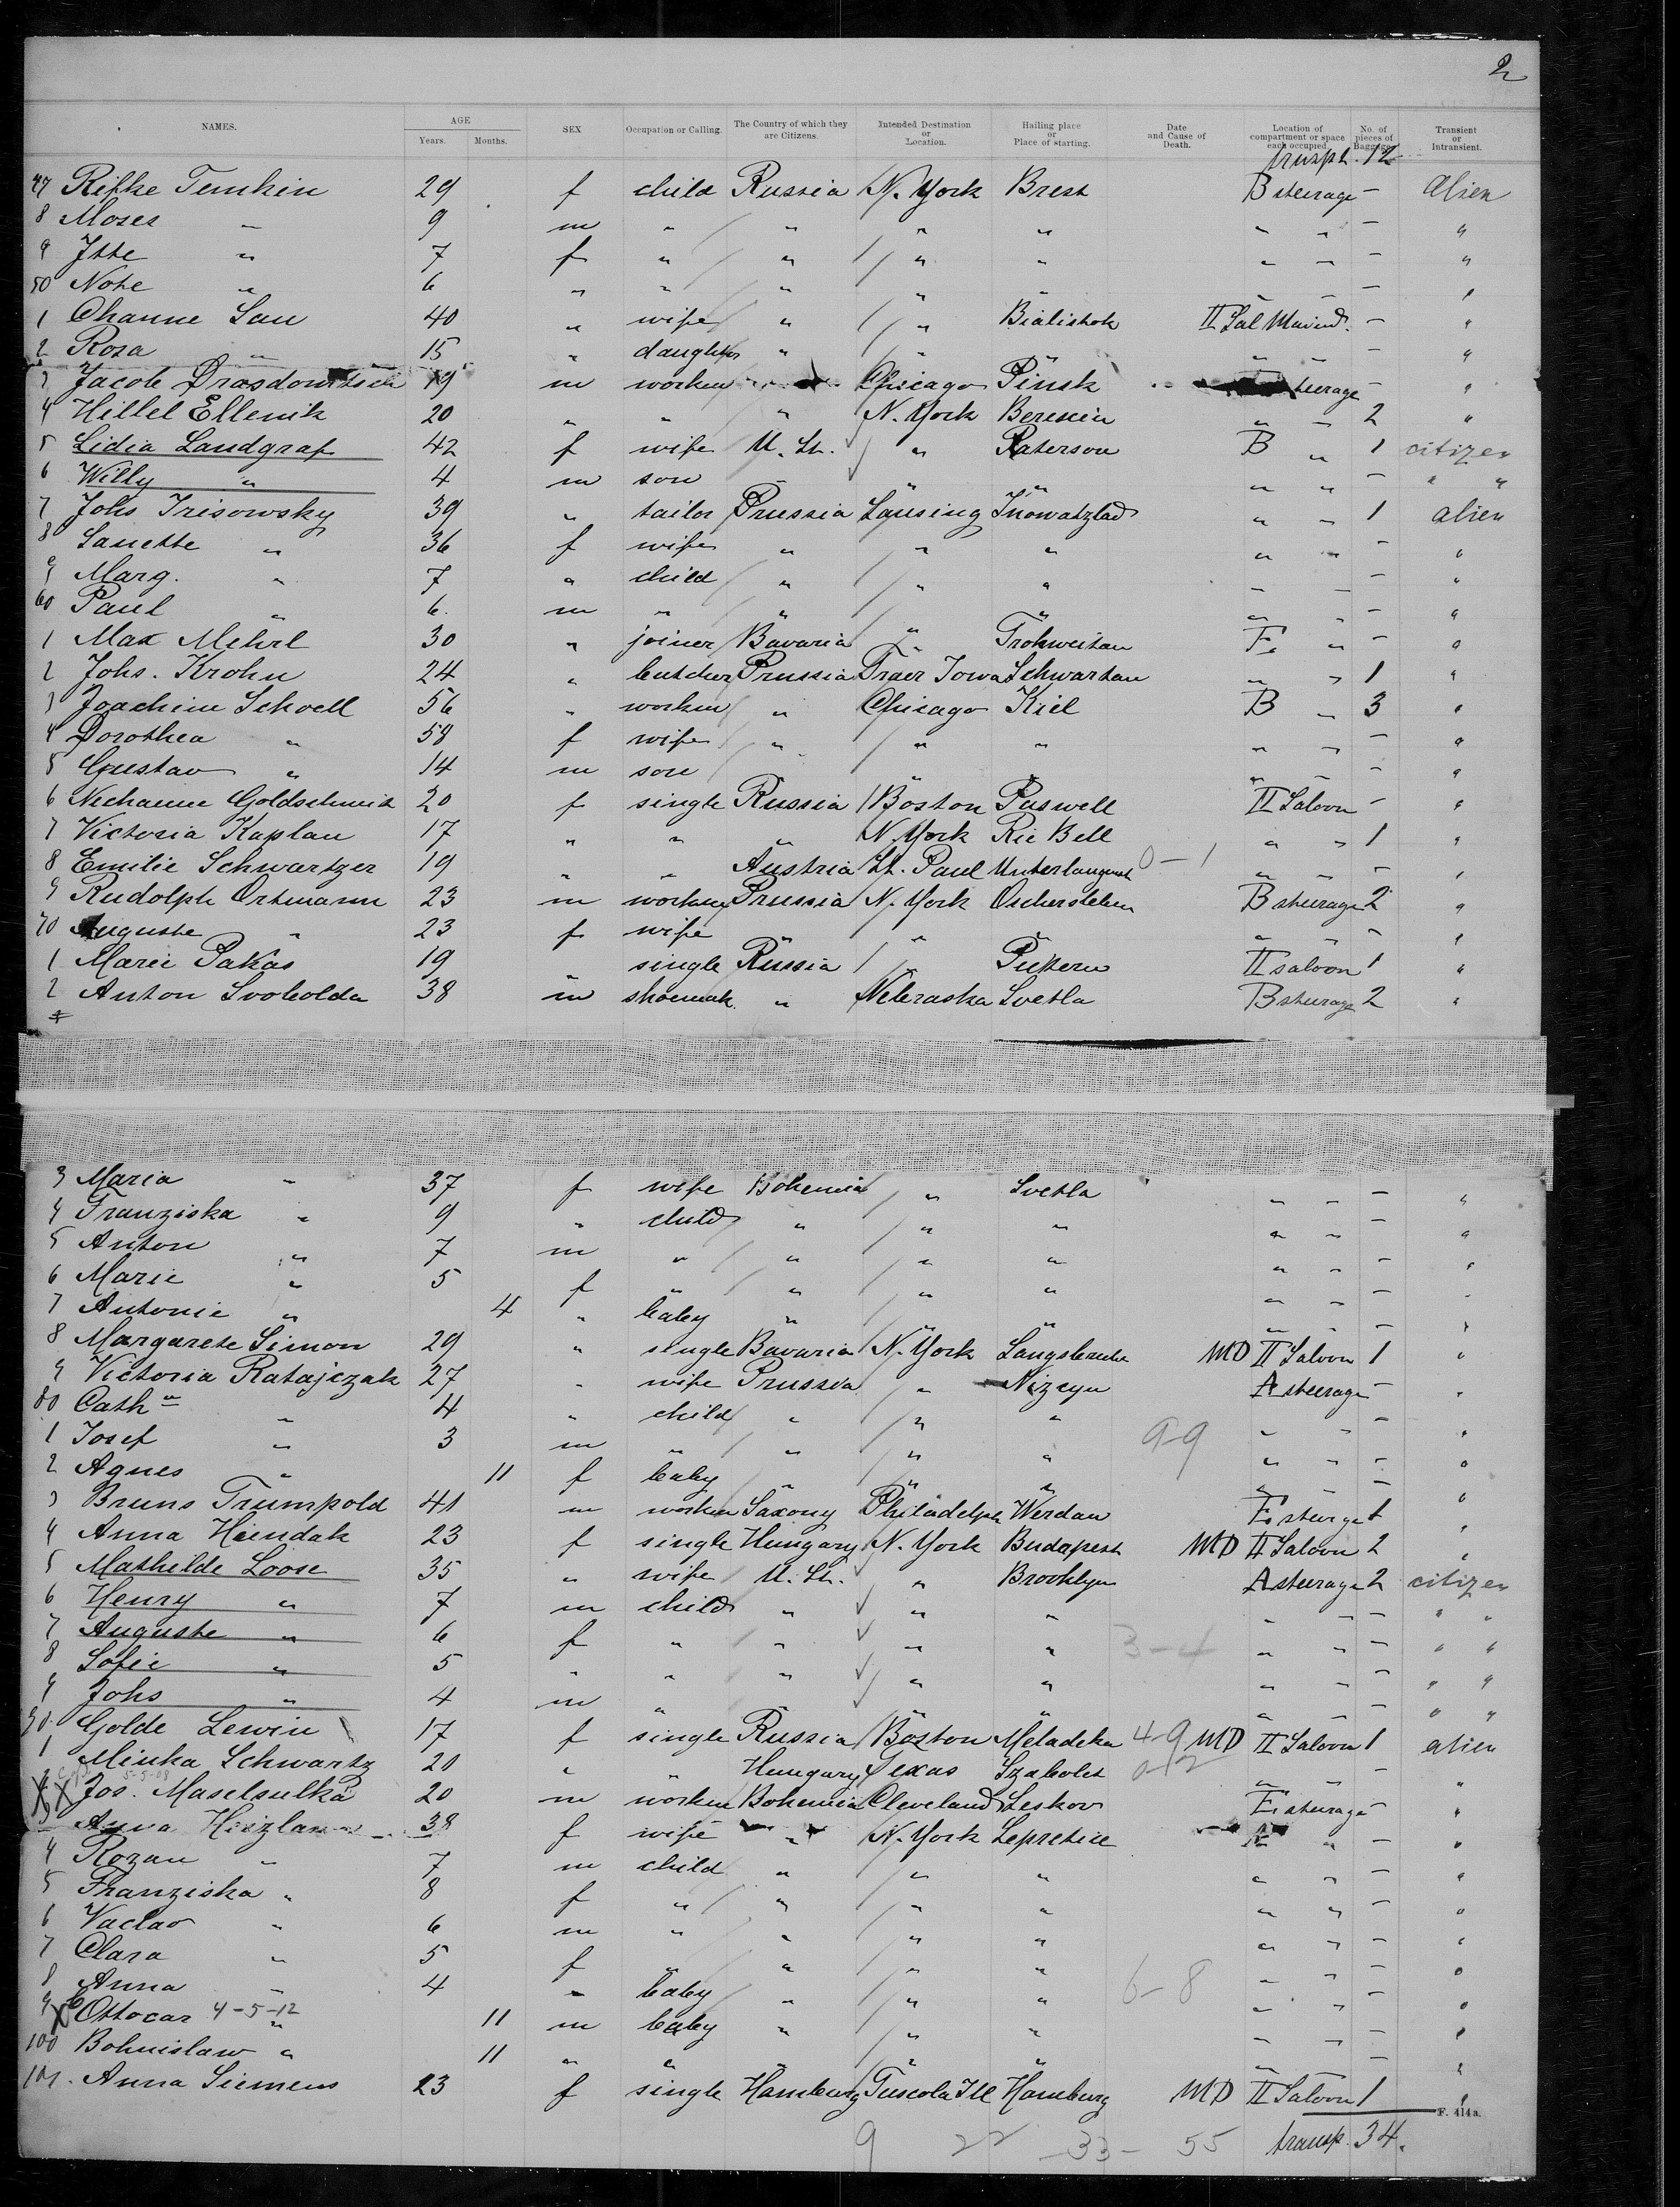 2
NAMES. AGE SEX Occupation or Calling. The Country of which they are Citizens. Intended Destination or Location. Hailing place or Place of starting. Date and Cause of Death. Location of compartment or space each occupied. No. of pieces of Baggage. Transient or Intransient.
Years. Months.
transpt. 12
47 Rifke Temkin 29 f child Russia N. York Brest B steerage – alien
8 Moses " 9 m " " " " " " – "
9 Itte " 7 f " " " " " " – "
50 Note " 6 " " " " " " " – "
1 Channe Sau 40 " wife " " Bialistok II Sal – "
2 Rosa " 15 " daughter " " " " " – "
3 Jacob 19 m workm Chicago Pinsk steerage – "
4 Hillel Ellenik 20 " " " N. York Beresin " " 2 "
5 Lidia Landgraf 42 f wife U. St. " Paterson B " 1 citizen
6 Willy " 4 m son " " " " – " "
7 Johs Trisowsky 39 " tailor Prussia Lansing Inowatzlad " " 1 alien
8 Sanette " 36 f wife " " " " " – "
9 Marg. " 7 " child " " " " " – "
60 Paul " 6 m " " " " " " – "
1 Max Mehrl 30 " joiner Bavaria " F " – "
2 Johs. Krohn 24 " butcher Prussia Traer Iowa Schwartau " " 1 "
3 Joachim Schoell 56 " workm " Chicago Kiel B " 3 "
4 Dorothea " 58 f wife " " " " " – "
5 Gustav " 14 m son " " " " " – "
6 Nechame Goldschmidt 20 f single Russia Boston Puswell II Saloon – "
7 Victoria Kaplan 17 " " " N. York Rie Bell " " 1 "
8 Emilie Schwartzer 19 " " Austria St. Paul 0–1 " " – "
9 Rudolph Ortmann 23 m workm Prussia N. York Oschersleben B steerage 2 "
70 Auguste " 23 f wife " " " " " – "
1 Marie Pakas 19 single Russia " II saloon 1 "
2 Anton Svobolda 38 m shoemak. " Nebraska Svetla B steerage 2 "
3 Maria " 37 f wife Bohemia " Svetla " " – "
4 Franziska " 9 " child " " " " " – "
5 Anton " 7 m " " " " " " – "
6 Marie " 5 f " " " " " " – "
7 Antonie " 4 " baby " " " " " – "
8 Margarete Simon 29 " single Bavaria N. York MD II Saloon 1 "
9 Victoria Ratajczak 27 " wife Prussia " Nizeyn A steerage – "
80 Cath " 4 " child " " " " " – "
1 Josef " 3 m " " " " 9-9 " " – "
2 Agnes " 11 f baby " " " " " – "
3 Bruns Trumpold 41 m workm Saxony Philadelph Werdau F steerage 1 "
4 Anna Hendak 23 f single Hungary N. York Budapest MD II Saloon 2 "
5 Mathilde Loose 35 " wife U. St. " Brooklyn A steerage 2 citizen
6 Henry " 7 m child " " " " " – " "
7 Auguste " 6 f " " " " 3–4 " " – " "
8 Sofie " 5 " " " " " " " – " "
9 Johs " 4 m " " " " " " – " "
90 Golde Lewin 17 f single Russia Boston Meladeka 4-9 MD II Saloon 1 alien
1 Minka Schwartz 20 " " Hungary Texas Szabolct 0-12 " " – "
2 Jos. Maselsulka 5-5-08 20 m workm Bohemia Cleveland Leskov F steerage – "
3 Anna 38 f wife " N. York Lepretice " – "
4 Rozan " 7 m child " " " " " – "
5 Franziska " 8 f " " " " " " – "
6 Vaclav " 6 m " " " " " " – "
7 Clara " 5 f " " " " " " – "
8 Anna " 4 " baby " " " 6–8 " " – "
9 Ottocar 4–5–12 " 11 m baby " " " " " – "
100 Bohuislaw " 11 " " " " " " " – "
101. Anna Siemens 23 f single Hamburg Tuscola Ill Hamburg MD II Saloon 1 "
F. 414a.
9 22 33– 55 transp. 34.